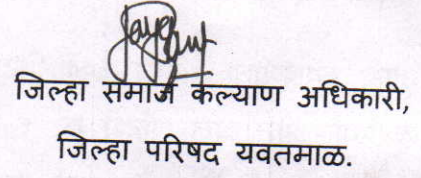 जिल्हा समाज कल्याण अधिकारी,
जिल्हा परिषद यवतमाळ.